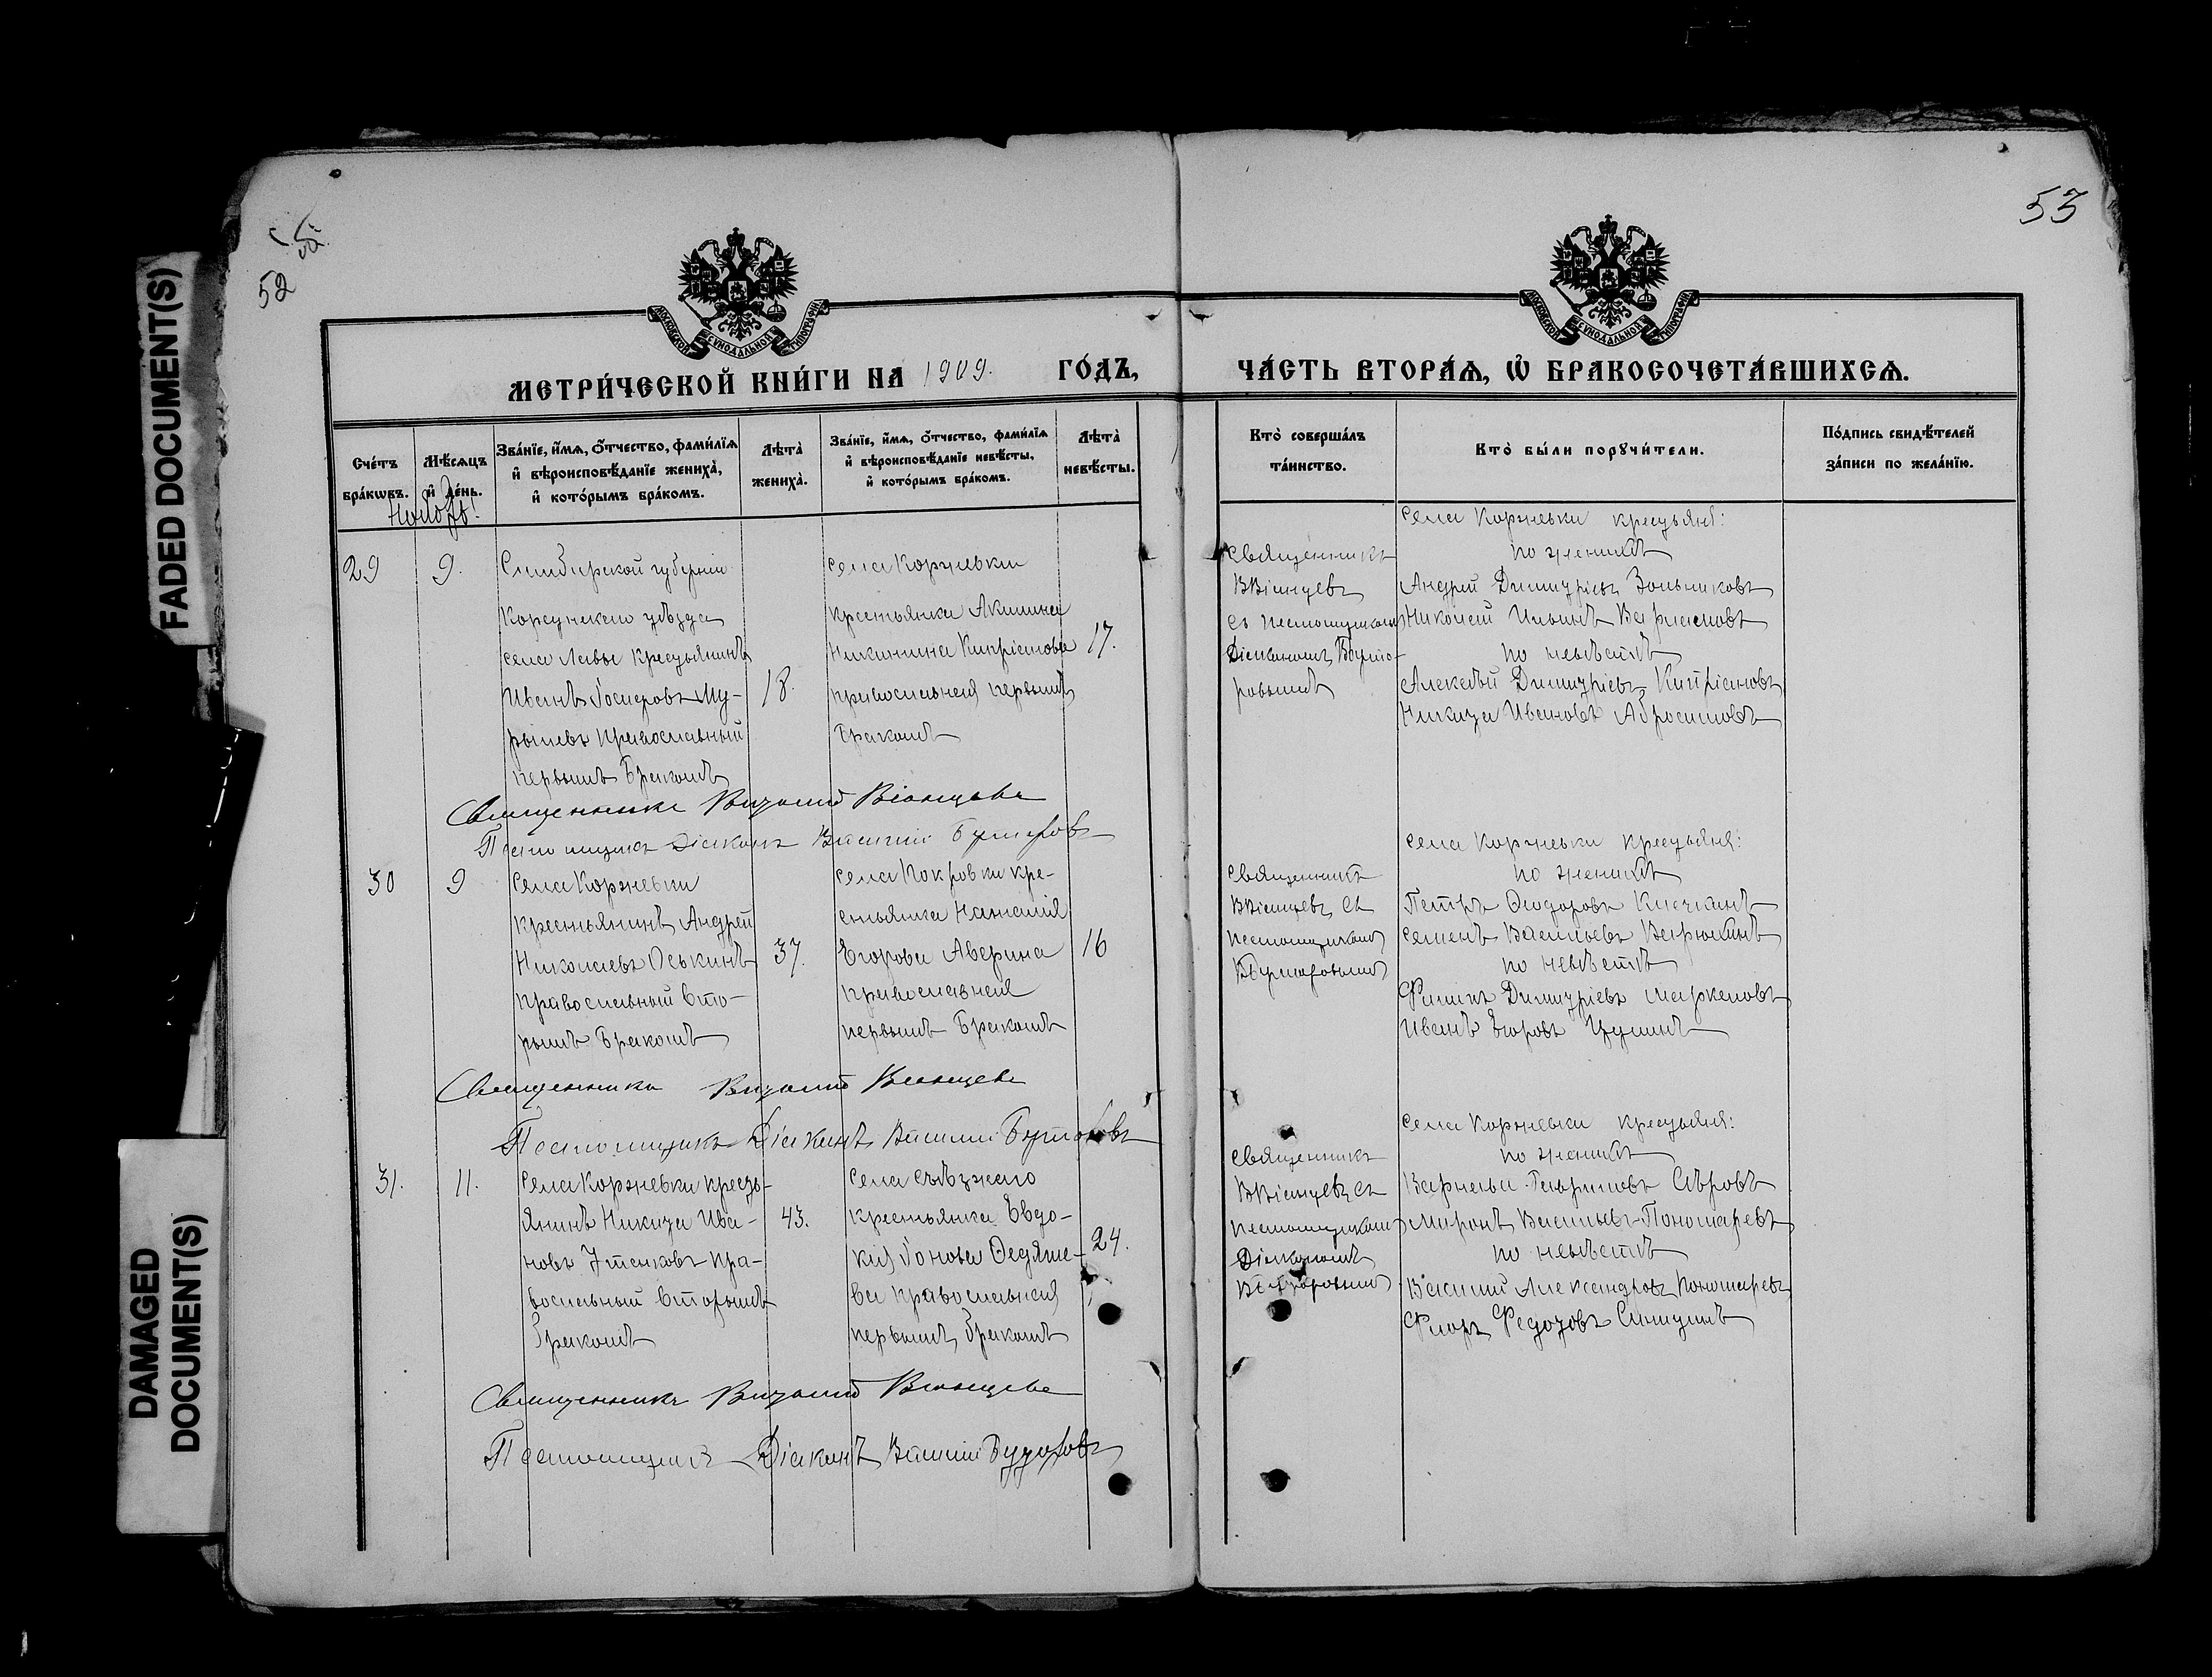 FADED DOCUMENT(S)
DAMAGED DOCUMENT(S)
52
53
МОСКОВСКОЙ СѴНОДАЛЬНОЙ ТИПОГРАФІИ
МОСКОВСКОЙ СѴНОДАЛЬНОЙ ТИПОГРАФІИ
МЕТРИ́ЧЕСКОЙ КНИ́ГИ НА 1909. ГО́ДЪ,
ЧА́СТЬ ВТОРА́Ѧ, Ѡ҆ БРАКОСОЧЕТА́ВШИХСѦ.
Сче́тъ бра́кѡвъ.
Мѣ́сѧцъ и҆ де́нь.
Зва́нїе, и҆́мѧ, ѻ҆́тчество, фами́лїѧ и҆ вѣроисповѣ́данїе жениха̀, и҆ кото́рымъ бра́комъ.
Лѣта̀ жениха̀.
Зва́нїе, и҆́мѧ, ѻ҆́тчество, фами́лїѧ и҆ вѣроисповѣ́данїе невѣ́сты, и҆ кото́рымъ бра́комъ.
Лѣта̀ невѣ́сты.
Кто̀ соверша́лъ та́инство.
Кто̀ бы́ли порꙋчи́тели.
По́дпись свидѣ́телей за́писи по жела́нїю.
Ноябрь
29
9.
Симбирской губерніи
Корсунскаго уѣзда
села Лавы крестьянинъ
Иванъ
рышевъ Православный
первымъ бракомъ
18.
села Коржевки
крестьянка Акилина
Никитина Кипріанова
православная первымъ
бракомъ
17.
священникъ
В Віанцевъ
съ псаломщикомъ
Діакономъ
ровымъ
села Коржевки крестьяне:
по женихѣ
Андрей Димитріевъ Зольниковъ
Николай Ильинъ Варламовъ
по невѣстѣ
Алексѣй Димитріевъ Кипріановъ
Никита Ивановъ Абросимовъ
Священникъ Виталій Віанцевъ
Псаломщикъ Діаконъ Василій
30
9
села Коржевки
крестьянинъ Андрей
Николаевъ Оськинъ
православный вто-
рымъ бракомъ
37.
села Покровки кре-
стьянка Наталія
Егорова Аверина
православная
первымъ бракомъ
16
священникъ
В Віанцевъ съ
псаломщикомъ
села Коржевки крестьяне:
по женихѣ
Петръ Ѳеодоровъ
Семенъ Васильевъ
по невѣстѣ
Филипъ Димитріевъ Маркеловъ
Иванъ Егоровъ
Священникъ Виталій Віанцевъ
Псаломщикъ Діаконъ Василій
31.
11.
села Коржевки кресть-
янинъ Никита Ива-
новъ Утенковъ пра-
вославный вторымъ
бракомъ
43.
села Съѣзжаго
крестьянка Евдо-
кия Іонова Ѳедяше-
ва православная
первымъ бракомъ
24.
священникъ
В Віанцевъ съ
псаломщикомъ
Діакономъ
села Коржевки крестьяне:
по женихѣ
Варнава Гавриловъ Сѣровъ
Миронъ Васильевъ Пономаревъ
по невѣстѣ
Василий Александровъ Пономаревъ
Флоръ Федотовъ
Священникъ Виталій Віанцевъ
Псаломщикъ Діаконъ Василій